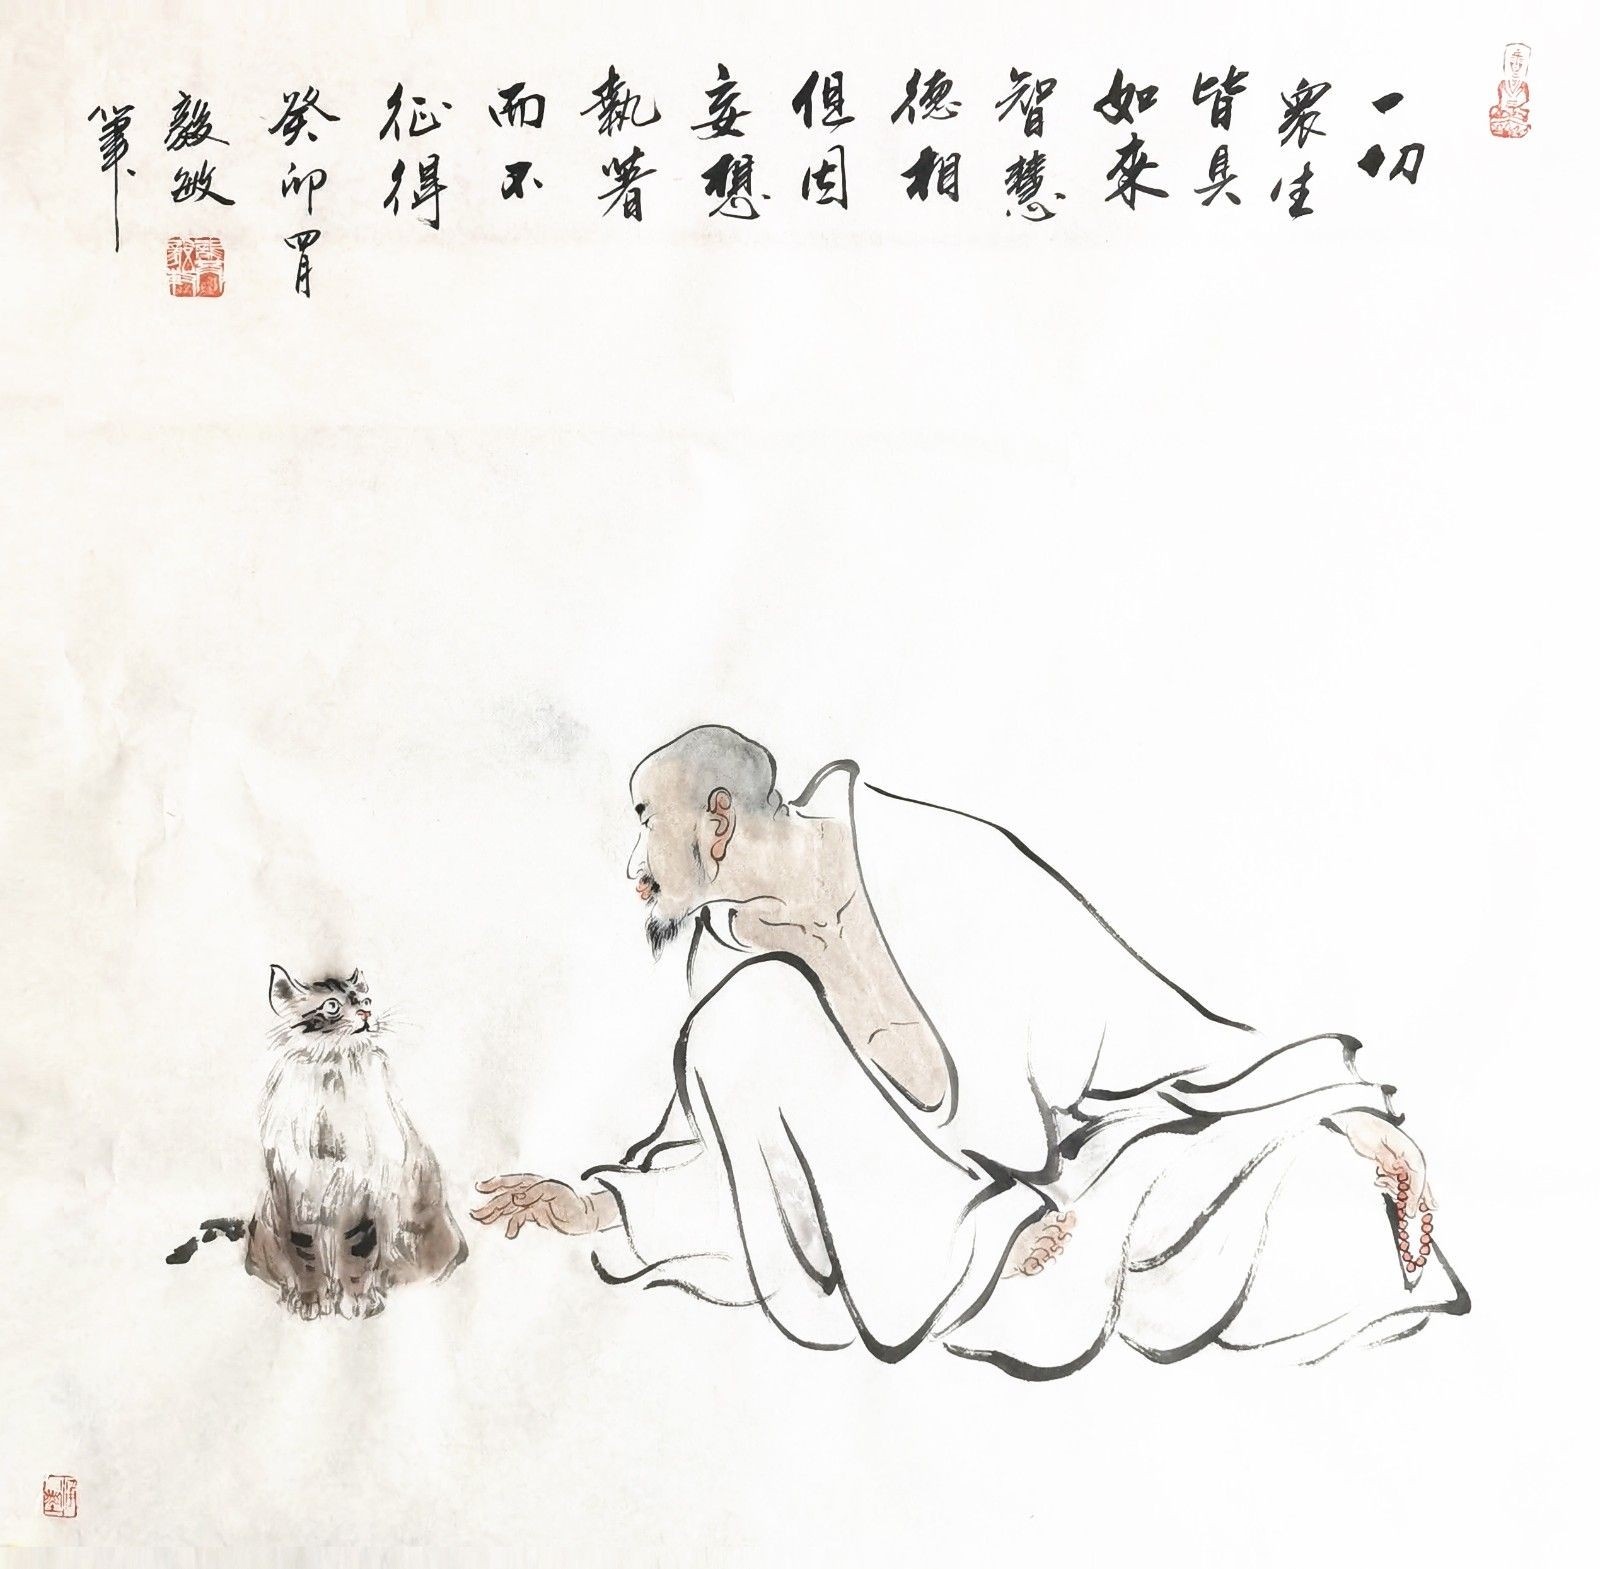 一切
眾生
皆具
如來
智慧
德相
但因
妄想
執著
而不
征得
癸卯四月
毅敏
筆